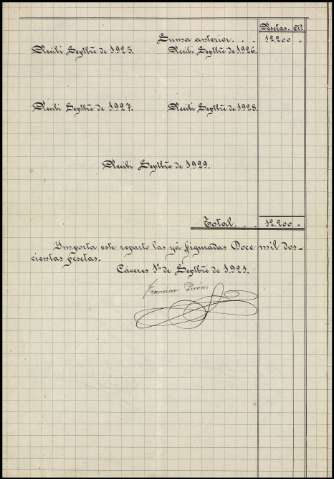 Pesetas. Ct.
Suma anterior . . . 12.200
Recibí Sepbre de 1925. Recibí Sepbre de 1926.
Recibí Sepbre de 1927. Recibí Sepbre de 1928.
Recibí Sepbre de 1929.
Total . . . 12.200
Importa este reparto las ya figuradas Doce mil dos-
cientas pesetas.
Cáceres 1º de Sepbre de 1921.